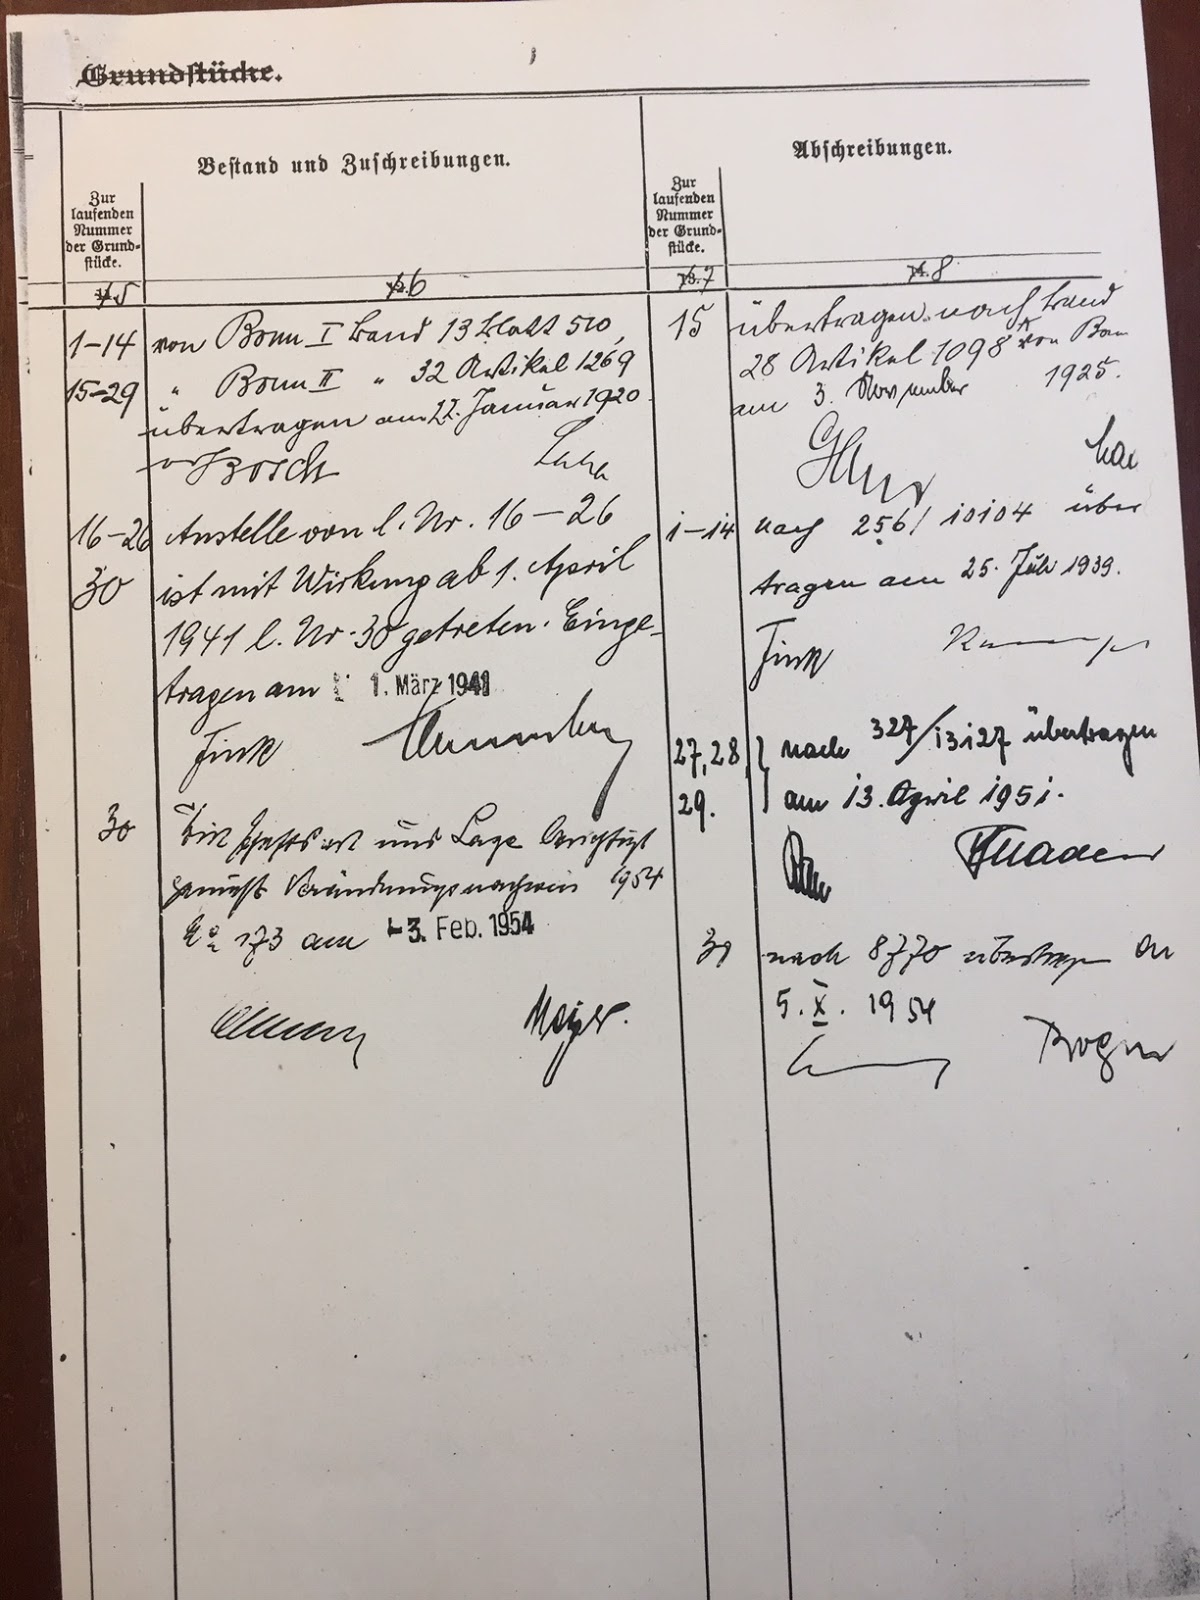 Grundstücke.
Bestand und Zuschreibungen.
Abschreibungen.
Zur
laufenden
Nummer
der Grund-
stücke.
Zur
laufenden
Nummer
der Grund-
stücke.
5
6
7
8
1-14 von Bonn I Band 13 Blatt 510,
15-29 " Bonn II " 32 Artikel 1269
übertragen am 22. Januar 1920
16-26 Anstelle von l. Nr. 16-26
30 ist mit Wirkung ab 1. April
1941 l. Nr. 30 getreten. Einge-
tragen am 1. März 1941
Fink
30 und Lage berichtigt
gemäß Veränderungsnachweis 1954
No 173 am -3. Feb. 1954
Meyer.
15 übertragen nach Band
28 Artikel 1098 von Bonn
am 3. November 1925.
1-14 nach 256/10104 über
tragen am 25. Juli 1939.
Fink
27, 28, nach 327/13127 übertragen
29. am 13. April 1951.
30 nach 8770 übertragen am
5. X. 1954